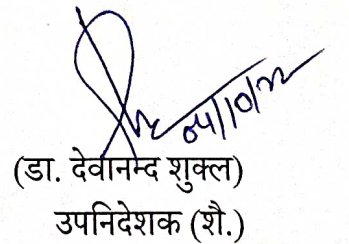 04/10/22
(डा. देवानन्द शुक्ल)
उपनिदेशक (शै.)